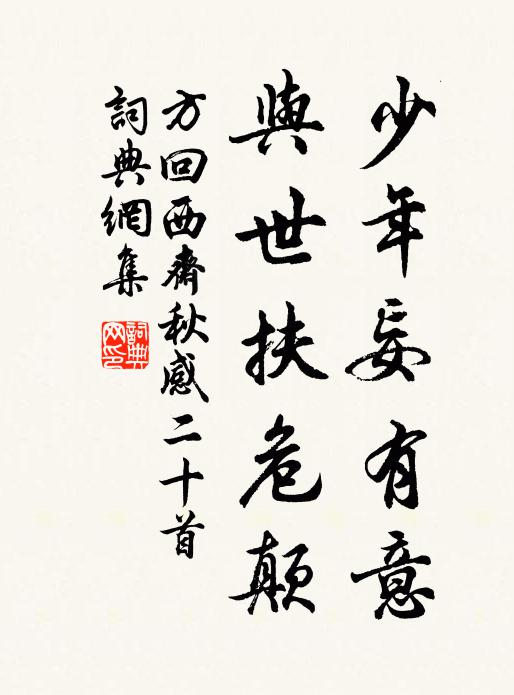 少年妄有意
與世扶危顛
方回西齋秋感二十首
詞典網集
詞典网印